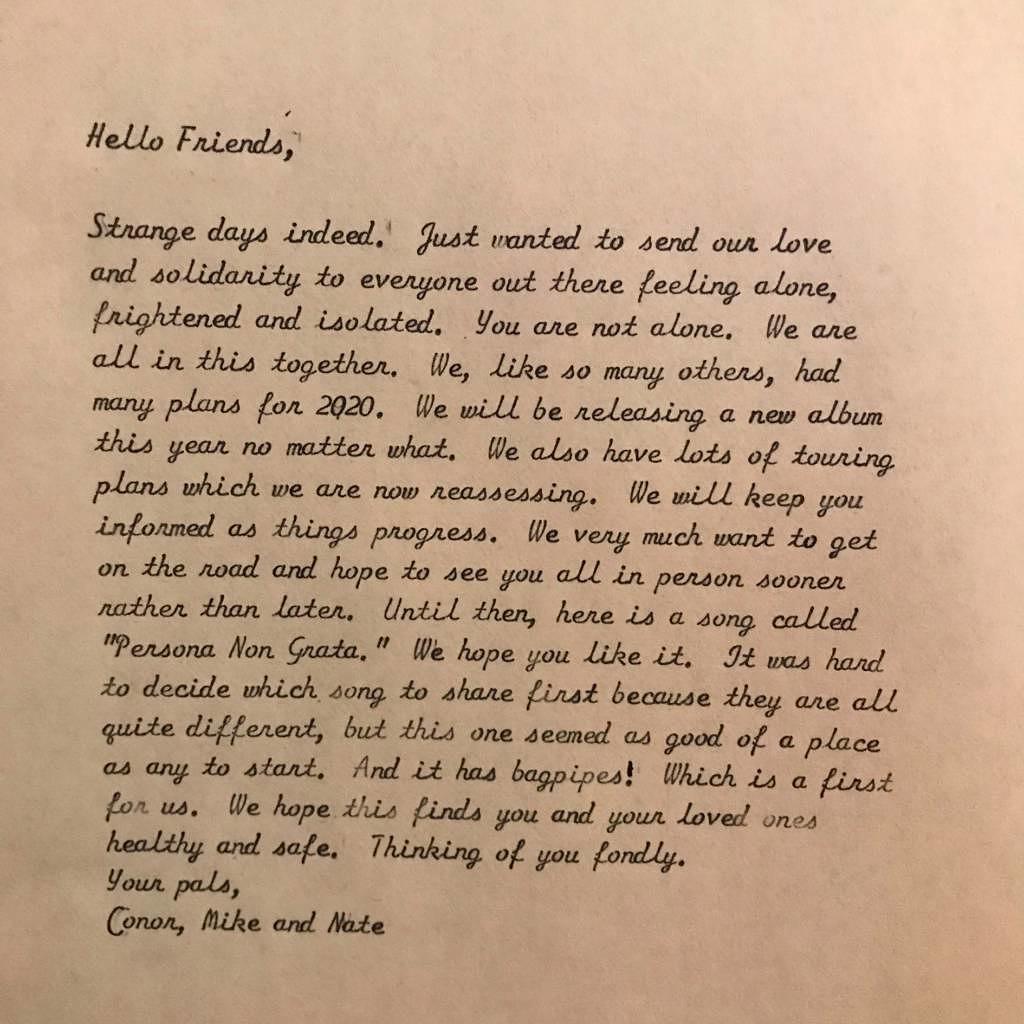 Hello Friends,
Strange days indeed. Just wanted to send our love
and solidarity to everyone out there feeling alone,
frightened and isolated. You are not alone. We are
all in this together. We, like so many others, had
many plans for 2020. We will be releasing a new album
this year no matter what. We also have lots of touring
plans which we are now reassessing. We will keep you
informed as things progress. We very much want to get
on the road and hope to see you all in person sooner
rather than later. Until then, here is a song called
"Persona Non Grata." We hope you like it. It was hard
to decide which song to share first because they are all
quite different, but this one seemed as good of a place
as any to start. And it has bagpipes! Which is a first
for us. We hope this finds you and your loved ones
healthy and safe. Thinking of you fondly.
Your pals,
Conor, Mike and Nate